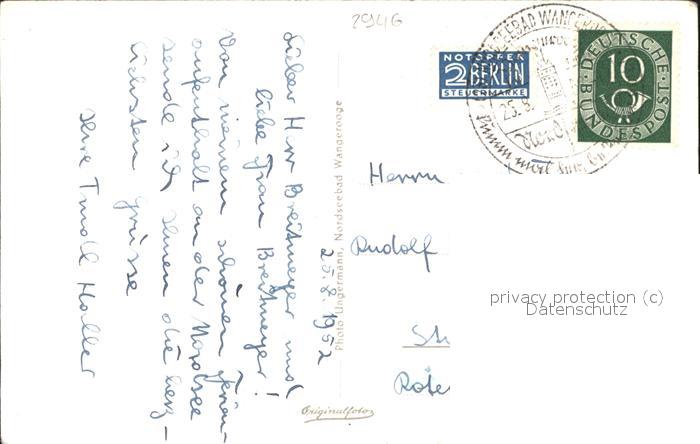 2946
25.8.1952
Lieber Herr Breitmeyer und
liebe Frau Breitmeyer!
Von meinem schönen Ferien-
aufenthalt an der Nordsee
sende ich Ihnen die herz-
lichsten Grüsse
Ihre Haller
Photo Ungermann, Nordseebad Wangerooge
Originalfoto
NOTOPFER
2 BERLIN
STEUERMARKE
NORDSEEBAD WANGEROOGE
25.8.
DEUTSCHE
10
BUNDESPOST
Herrn
Rudolf
St
Rote
privacy protection (c)
Datenschutz